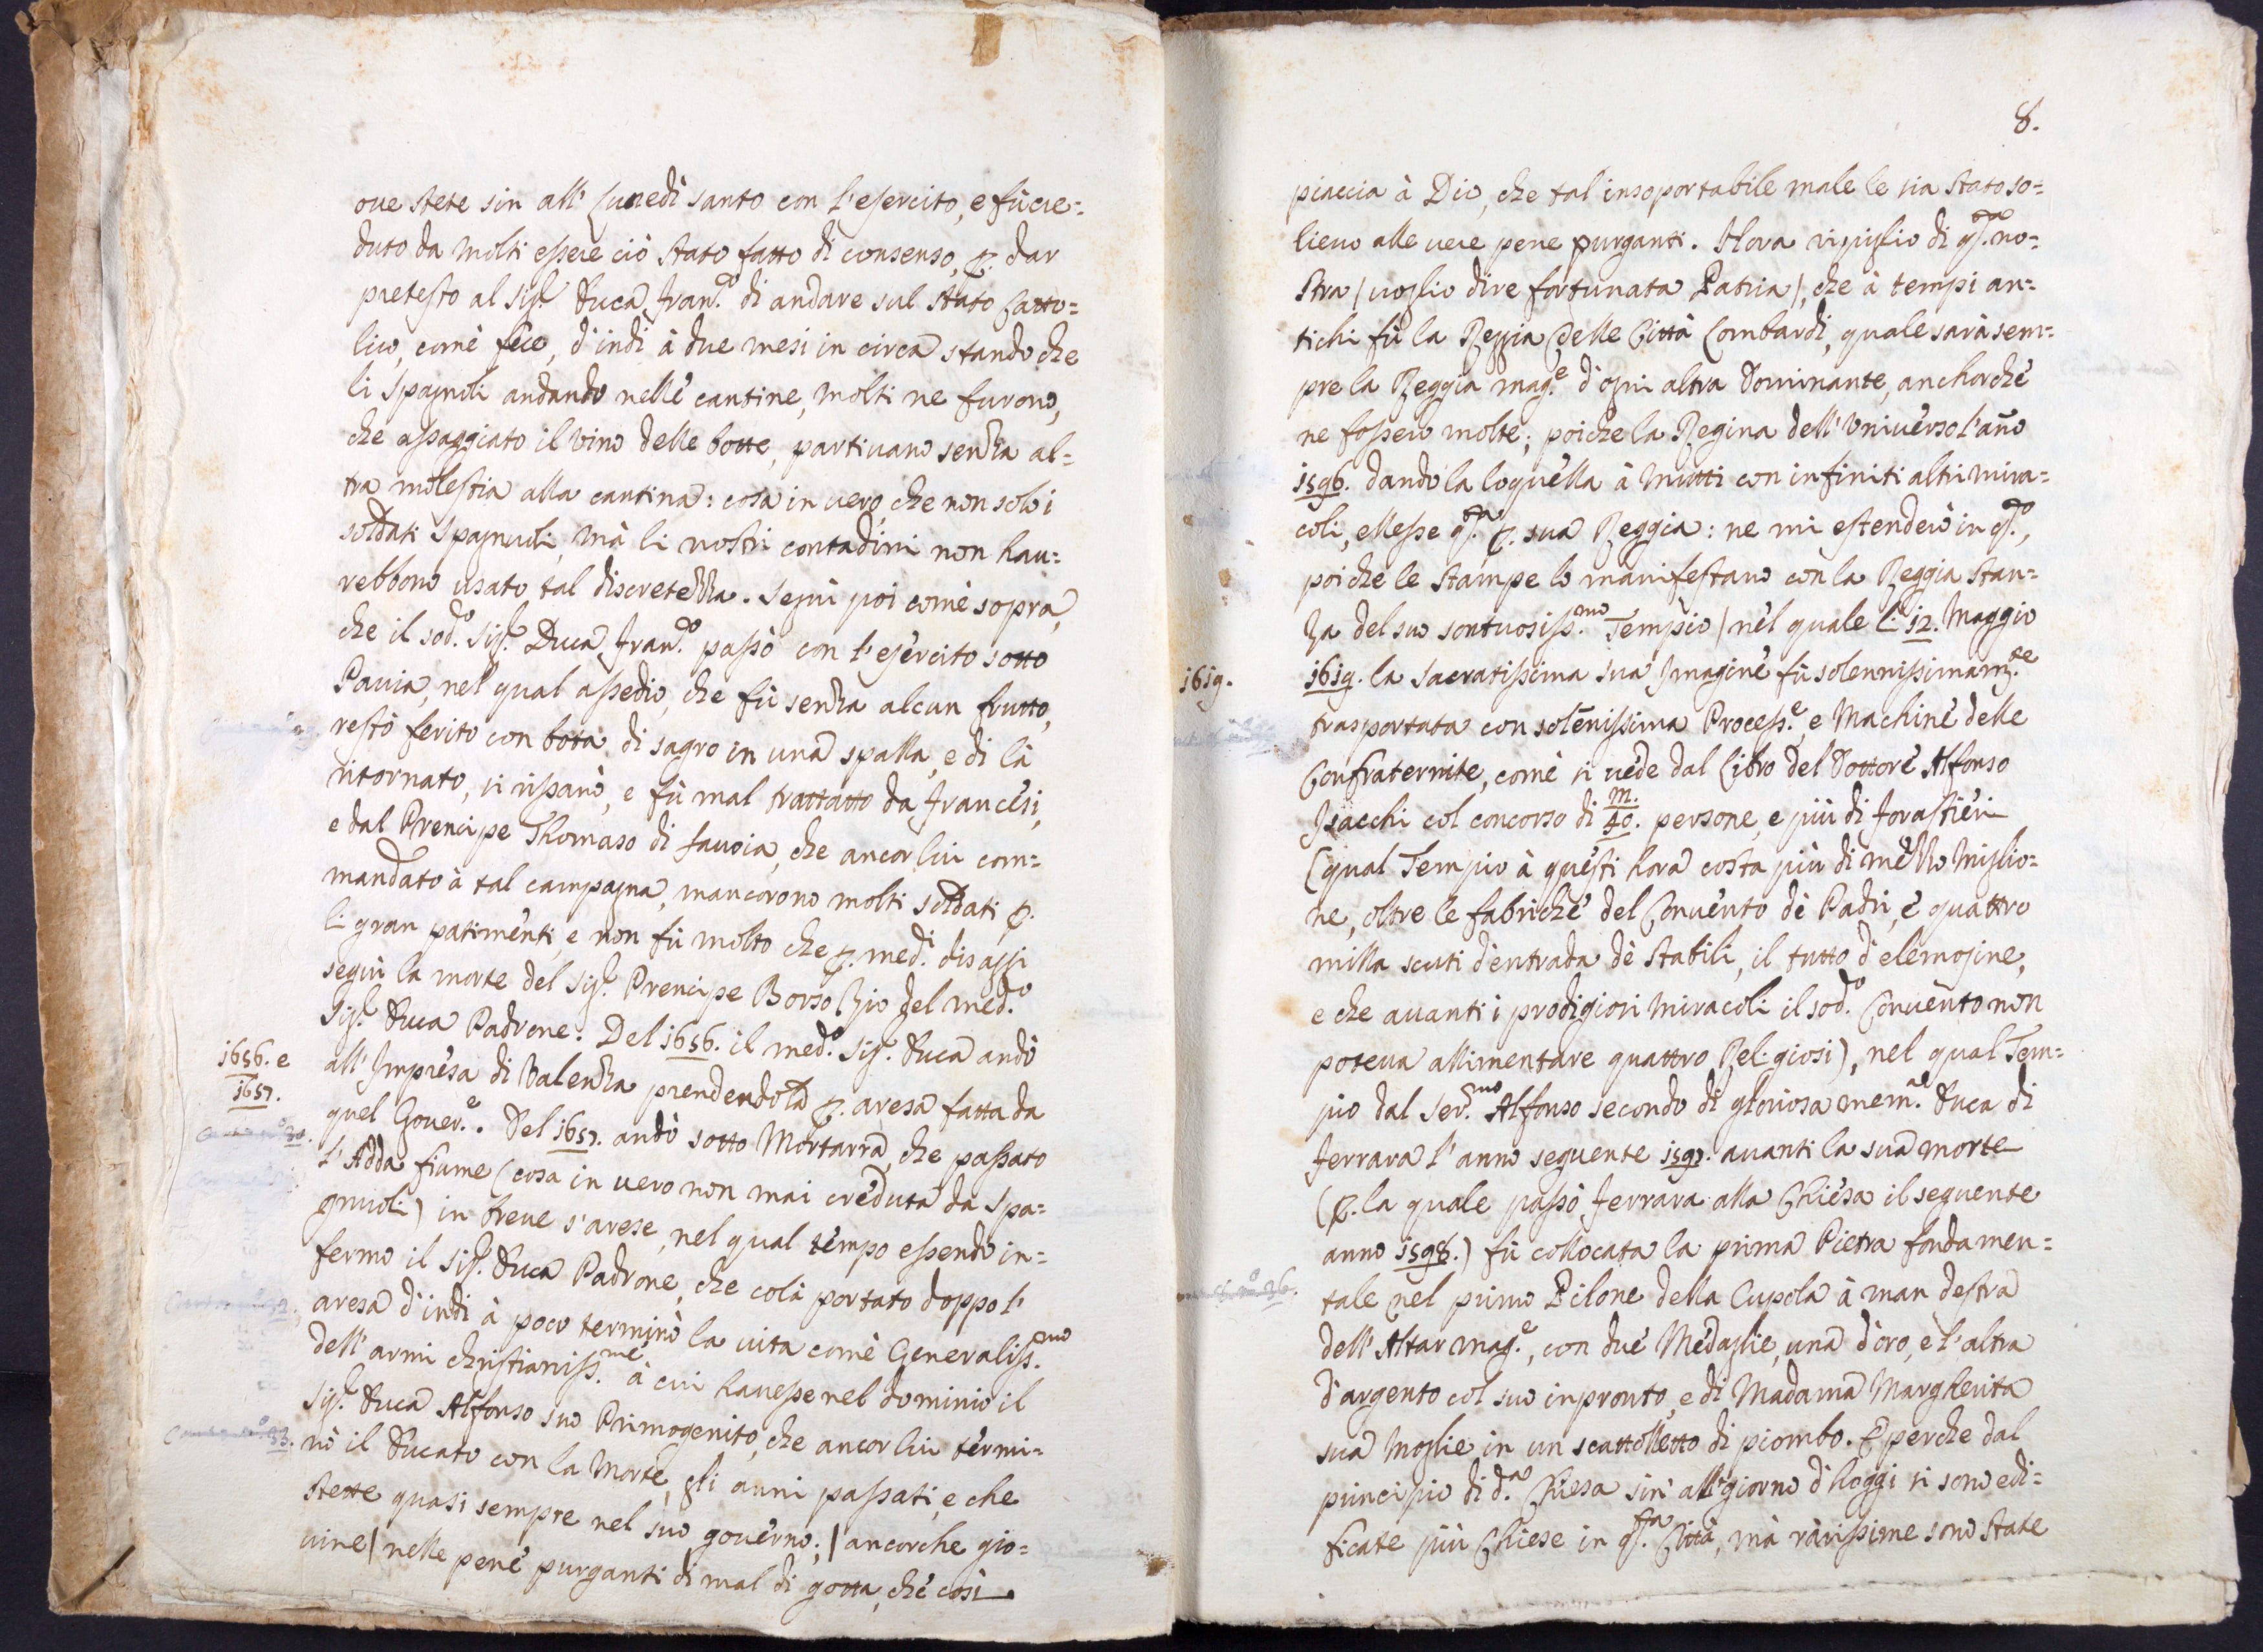 oue stete sin all' Lunedì santo con l'esercito, e fù cre=
duto da molti essere ciò stato fatto di consenso, p. dar
pretesto al Sig.r Duca Fran.co di andare sul stato Catto=
lico, comè fece, d'indi à due mesi in circa stando che
li Spagnoli andando nelle cantine, molti ne furono,
che assaggiato il vino delle botte, partiuano senza al=
tra molestia alla cantina: cosa in uero, che non solo i
soldati Spagnuoli, mà li nostri contadini non hau=
rebbono usato tal discretezza. Seguì poi comè sopra,
che il sod.o Sig.r Duca Fran.co passò con l'esercito sotto
Pauia, nel qual assedio, che fù senza alcun frutto,
restò ferito con bota di sagro in una spalla, e di là
ritornato, si risanò, e fù mal trattatto da Francesi,
e dal Prencipe Thomaso di Sauoia, che ancor lui com=
mandato à tal campagna, mancorono molti soldati, p.
li gran patimenti, e non fù molto che p. med.i disaggi
seguì la morte del Sig.r Prencipe Borso Zio del med.o
Sig.r Duca Padrone. Del 1656. il med.o Sig.r Duca andò
1656. e
1657.
all'Impresa di Valenza prendendola p. aresa fatta da
quel Gouer.e. Del 1657. andò sotto Mortarra, che passato
l'Adda fiume (cosa in uero non mai creduta da Spa=
gnuoli) in breue s'arese, nel qual tempo essendo in=
fermo il Sig.r Duca Padrone, che colà portato doppo l'
aresa d'indi à poco terminò la uita comè Generaliss.mo
dell'armi christianiss.me, à cui hauesse nel dominio il
Sig.r Duca Alfonso suo Primogenito, che ancor lui termi=
nò il Ducato con la Morte, gli anni passati, e che
stette quasi sempre nel suo gouerno; (ancorche gio=
uine) nelle pene purganti di mal di gotta, che così
8.
piaccia à Dio, che tal insoportabile male le sia stato so=
lieuo alle uere pene purganti. Hora ripiglio di q.sta no=
stra (uoglio dire fortunata Patria), che à tempi an=
tichi fù la Reggia delle Città Lombardi, quale sarà sem=
pre la Reggia mag.e d'ogni altra Dominante, anchorché
ne fossero molte; poiche la Regina dell'Vniuerso l'año
1596. dando la loquella à Mutti con infiniti altri mira=
coli, ellesse q.sta p. sua Reggia: ne mi estenderò in q.sto,
poiche le stampe lo manifestano con la Reggia stan=
za del suo sontuosiss.mo Tempio (nel quale li 12. Maggio
1619.
1619. la sacratissima sua Imagine fù solennissimam.te
trasportata con solenissima Process.e, e Machine delle
Confraternite, comè si uede dal Libro del Dottore Alfonso
Isacchi col concorso di 40.m persone, e più di Forastieri
(qual Tempio à questi hora costa più di mezzo Miglio=
ne, oltre le fabriche del Conuento de Padri, e quattro
milla scuti d'entrada dè stabili, il tutto d'elemosine,
e che auanti i prodigiosi Miracoli il sod.o Conuento non
poteua allimentare quattro Religiosi), nel qual Tem=
pio dal Ser.mo Alfonso secondo di gloriosa mem.a Duca di
Ferrara l'anno seguente 1597. auanti la sua morte
(p. la quale passò Ferrara alla Chiesa il seguente
anno 1598.) fù collocata la prima Pietra fondamen=
tale nel primo Pilone della Cupola à man destra
dell'Altar mag.e, con due Medaglie, una d'oro, e l'altra
d'argento col suo inpronto, e di Madama Margherita
sua Moglie in un scattolletto di piombo. E perche dal
principio di d.a Chiesa sin' all'giorno d'hoggi si sono edi=
ficate più Chiese in q.sta Città, mà rarissime sono state